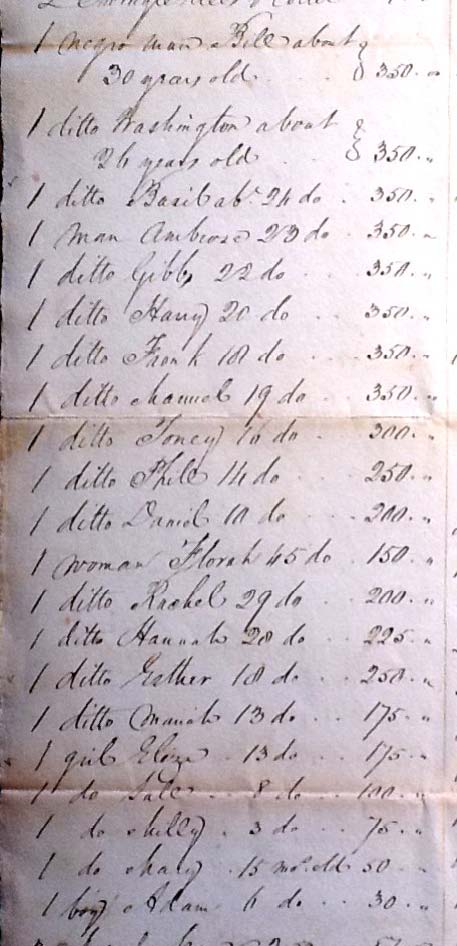 1 negro man Bill about
30 years old . . . 350 . "
1 ditto Washington about
26 years old . . 350 . "
1 ditto Basil abt. 24 do . 350 . "
1 man Ambrose 23 do . 350 . "
1 ditto Gibbs 22 do . . 350 . "
1 ditto Harry 20 do . . 350 . "
1 ditto Frank 18 do . . . 350 . "
1 ditto Manuel 19 do . . 350 . "
1 ditto Toney 16 do . . 300 . "
1 ditto Phill 14 do . . . 250 . "
1 ditto Daniel 10 do . . 200 . "
1 woman Florah 45 do . 150 . "
1 ditto Rachel 29 do . . 200 . "
1 ditto Hannah 28 do . . 225 . "
1 ditto Esther 18 do . . 250 . "
1 ditto Mariah 13 do . . 175 . "
1 girl Eliza . 13 do . . 175 . "
1 do Sall . . 8 do . . 100 . "
1 do Milly . 3 do . . 75 . "
1 do Mary . 15 mo. old 50 . "
1 boy Adam 6 do . . 30 . "